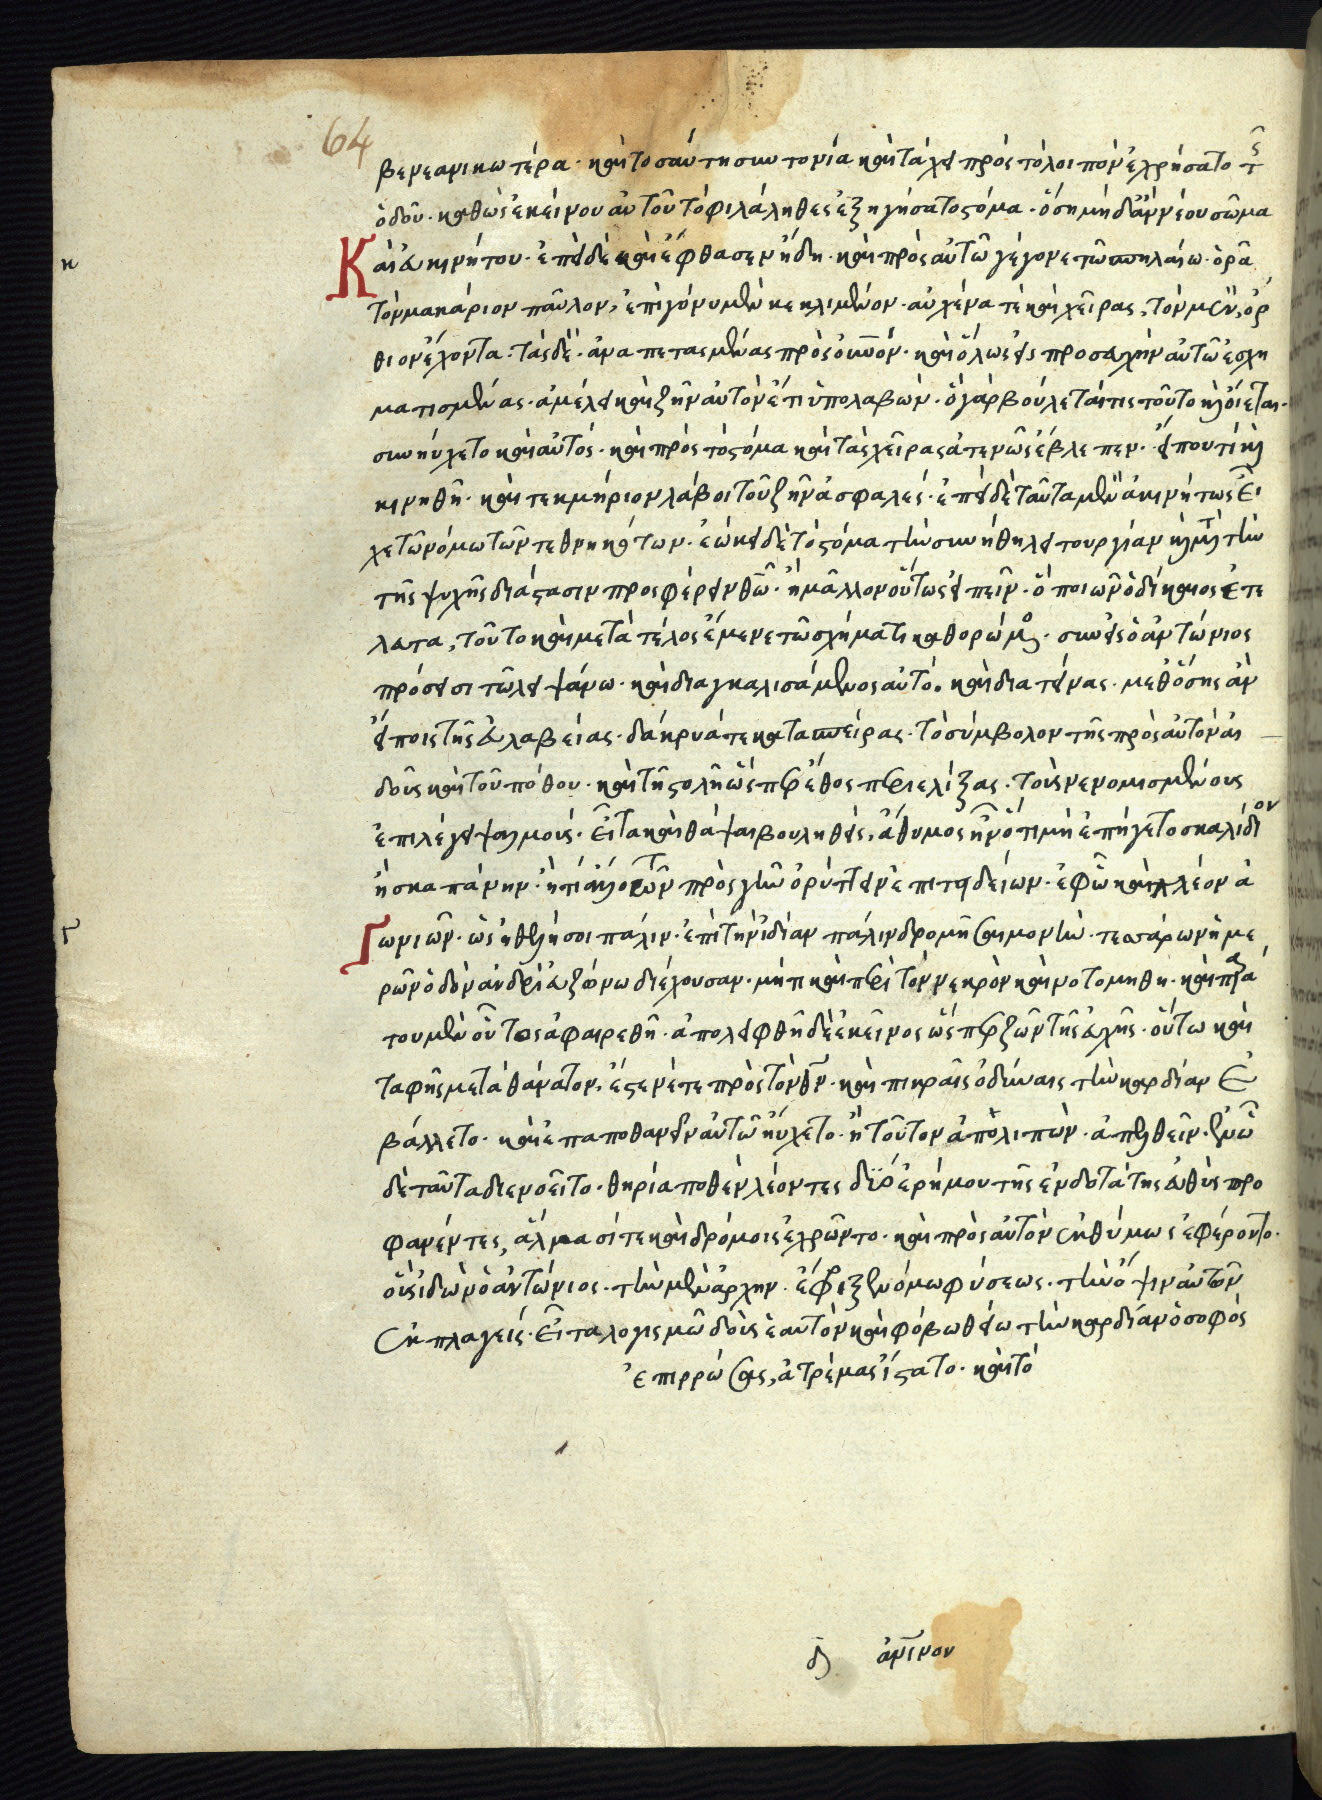 64
βενεανικωτέρα· καὶ τοσαύτη συντονία καὶ τάχει πρὸς τὸ λοιπὸν ἐχρήσατο τῆς
ὁδοῦ· καθὼς ἐκείνου αὐτοῦ τὸ φιλάληθες ἐξηγήσατο στόμα· ὅση μηδ' ἂν νέου σῶμα
Καὶ εὐκινήτου· ἐπεὶ δὲ καὶ ἔφθασεν ἤδη· καὶ πρὸς αὐτῶ γέγονε τῶ σπηλαίω· ὁρᾶ
κ
τὸν μακάριον παῦλον, ἐπὶ γόνυ μὲν κεκλιμένον· αὐχένα τὲ καὶ χεῖρας, τὸν μὲν, ὄρ
θιον ἔχοντα· τὰς δὲ· ἀναπετασμένας πρὸς οὐρανόν· καὶ ὅλως εἰς προσευχὴν αὐτῶ ἐσχη
ματισμένας· ἀμέλει καὶ ζῆν αὐτὸν ἔτι ὑπολαβὼν· ὃ γὰρ βούλεται τις τοῦτο καὶ οἴεται·
συνηύχετο καὶ αὐτός· καὶ πρὸς τὸ στόμα καὶ τὰς χεῖρας ἀτενῶς ἔβλεπεν· εἴ που τί καὶ
κινηθῆ· καὶ τεκμήριον λάβοι τοῦ ζῆν ἀσφαλές· ἐπεὶ δὲ ταῦτα μὲν ἀκινήτως εἶ
χε τῶ νόμω τῶν τεθνηκότων· ἐώκει δὲ τὸ στόμα τὴν συνήθη λειτουργίαν καὶ μετὰ τὴν
τῆς ψυχῆς διάστασιν προσφέρειν θεῶ· ἢ μᾶλλον οὕτως εἰπεῖν· ὃ ποιῶν ὁ δίκαιος ἐτε
λεύτα, τοῦτο καὶ μετὰ τέλος ἔμενε τῶ σχήματι καθορώμενος· συνεὶς ὁ ἀντώνιος
πρόσεισι τῶ λειψάνω· καὶ διαγκαλισάμενος αὐτό· καὶ διατείνας· μεθ' ὅσης ἂν
εἴποις τῆς εὐλαβείας· δάκρυά τε κατασπείρας· τὸ σύμβολον τῆς πρὸς αὐτὸν αἰ
δοῦς καὶ τοῦ πόθου· καὶ τῆ στολῆ ὥσπερ ἔθος περιελίξας· τοὺς νενομισμένους
ἐπιλέγει ψαλμούς· εἶτα καὶ θάψαι βουληθεὶς, ἄθυμος ἦν ὅτι μὴ ἐπήγετο σκαλίδιον
ἢ σκαπάνην· ἢ τί ἄλλο τῶν πρὸς γῆν ὀρύττειν ἐπιτηδείων· ἐφ' ὧ καὶ πλέον ἀ
Γωνιῶν· ὡς ἠθέλησοι πάλιν· ἐπὶ τὴν ἰδίαν παλινδρομῆσαι μονὴν· τεσσάρων ἡμε
Γ
ρῶν ὁδὸν ἀνδρὶ εὐζώνω διέχουσαν· μήπη καὶ περὶ τὸν νεκρὸν καινοτομηθῆ· καὶ παρα
του μὲν οὗτος ἀφαιρεθῆ· ἀπολειφθῆ δὲ ἐκεῖνος ὥσπερ ζῶν τῆς εὐχῆς· οὕτω καὶ
ταφῆς μετὰ θάνατον, ἔστενέ τε πρὸς τὸν θν· καὶ πικραῖς ὀδύναις τὴν καρδίαν ἐ
βάλλετο· καὶ ἐπαποθανεῖν αὐτῶ ηὔχετο· ἢ τοῦτον ἀπολιπὼν· ἀπελθεῖν· ἐν ὧ
δὲ ταῦτα διενοεῖτο· θηρία ποθὲν λέοντες δύο ἐρήμου τῆς ἐνδοτάτης εὐθὺς προ
φανέντες, ἅλμασί τε καὶ δρόμοις ἐχρῶντο· καὶ πρὸς αὐτὸν ἐκθύμως ἐφέροντο·
οὓς ἰδὼν ὁ ἀντώνιος· τὴν μὲν ἀρχὴν· ἔφριξε νόμω φύσεως· τὴν ὄψιν αὐτῶν
ἐκπλαγείς· εἶτα λογισμῶ δοὺς ἑαυτὸν καὶ φόβω θείω τὴν καρδίαν ὁ σοφὸς
ἐπιρρώσας, ἀτρέμας ἵστατο· καὶ τὸ
ἀκίνον